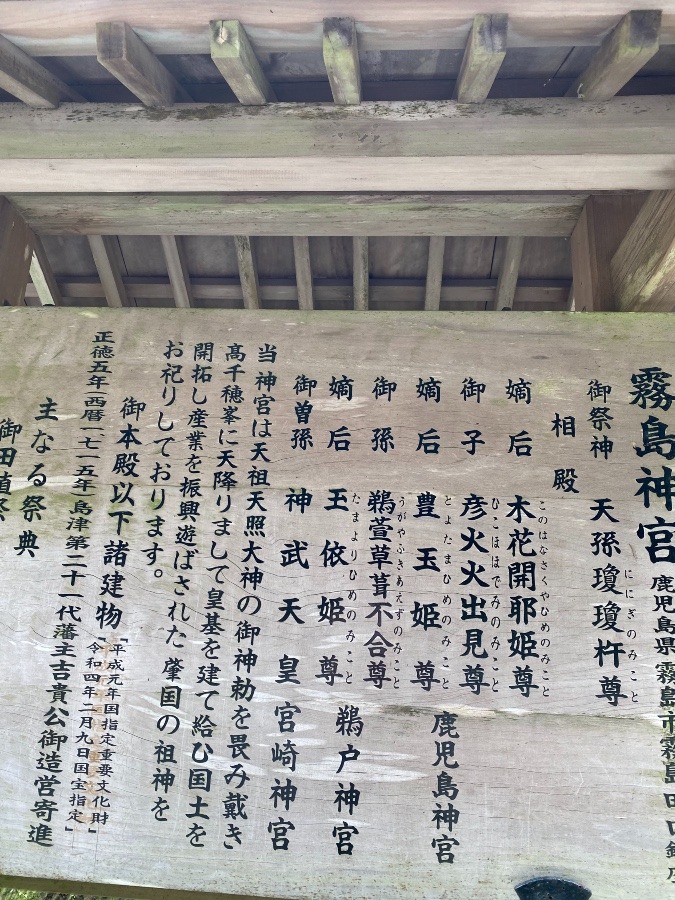 霧島神宮
鹿児島県霧島市霧島田口鎮座
御祭神 天孫瓊瓊杵尊
ににぎのみこと
相殿
嫡后 木花開耶姫尊
このはなさくやひめのみこと
御子 彦火火出見尊
ひこほほでみのみこと
嫡后 豊玉姫尊 鹿児島神宮
とよたまひめのみこと
御孫 鵜萱草葺不合尊
うがやふきあえずのみこと
嫡后 玉依姫尊 鵜戸神宮
たまよりひめのみこと
御曽孫 神武天皇 宮崎神宮
当神宮は天祖天照大神の御神勅を畏み戴き
高千穂峯に天降りまして皇基を建て給ひ国土を
開拓し産業を振興遊ばされた肇国の祖神を
お祀りしております。
御本殿以下諸建物
「平成元年国指定重要文化財」
「令和四年二月九日国宝指定」
正徳五年(西暦一七一五年)島津第二十一代藩主吉貴公御造営寄進
主なる祭典
御田植祭